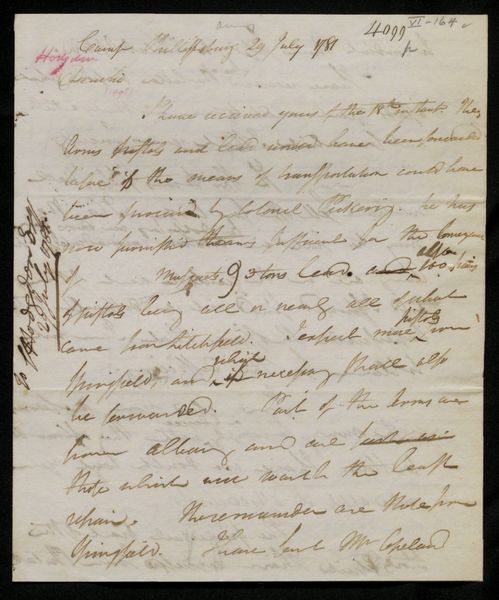 VI-164
4099
Camp Phillipsburg 29 July 1781
Hodgdon
I have received yours of the 18th instant. The
Arms Pistols and lead would have been forwarded
before if the means of transportation could have
been procured by Colonel Pickering. he has
now furnished means sufficient for the Conveyance
of Musquets 9 2 tons lead. and 160 pairs
also
of pistols being all or nearly all of what
came from Litchfield. I expect more from
pistols
Springfield, and if necessary shall also
which
be forwarded. Part of the Arms are
from albany and are
those which were worth the least
repair. The remainder are those from
Springfield. I have sent Mr Copeland
To S Hodgdon Esq
29 July 1781